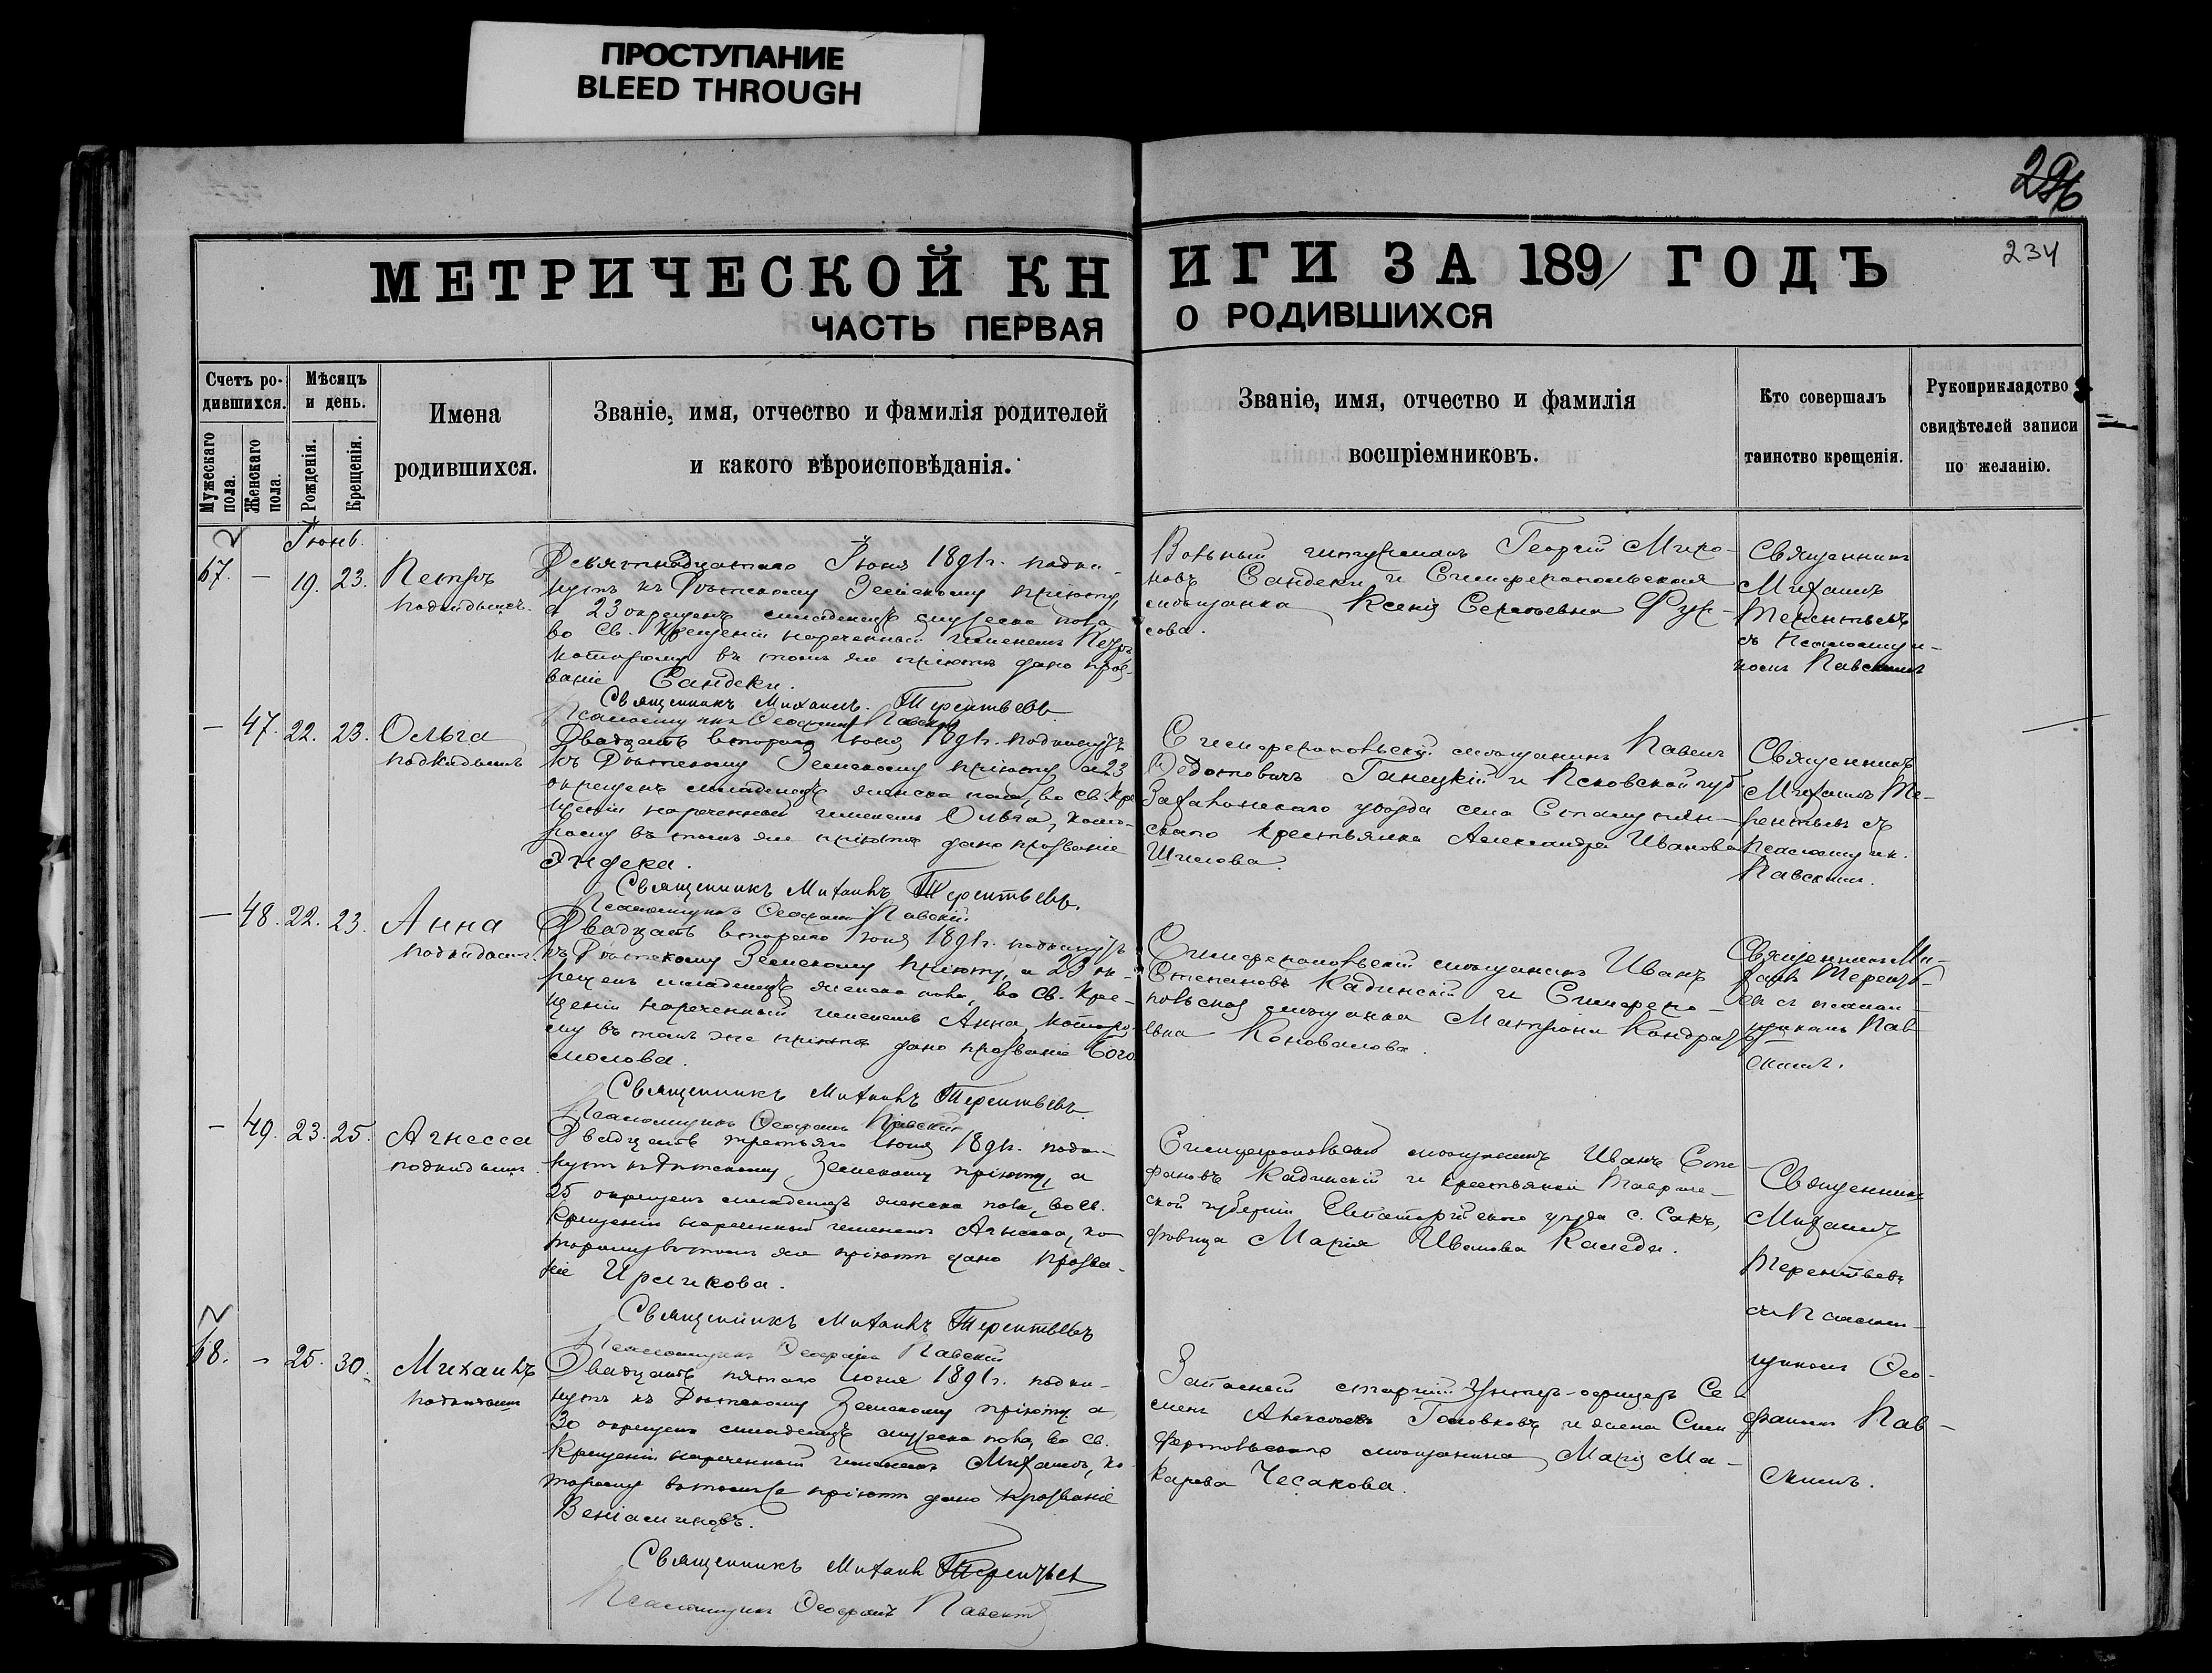 ПРОСТУПАНИЕ
BLEED THROUGH
296
234
МЕТРИЧЕСКОЙ КН
ИГИ ЗА 1891 ГОДЪ
ЧАСТЬ ПЕРВАЯ
О РОДИВШИХСЯ
Счетъ ро-
дившихся.
Мужескаго
пола.
Женскаго
пола.
Мѣсяцъ
и день.
Рожденія.
Крещенія.
Имена
родившихся.
Званіе, имя, отчество и фамилія родителей
и какого вѣроисповѣданія.
Званіе, имя, отчество и фамилія
воспріемниковъ.
Кто совершалъ
таинство крещенія.
Рукоприкладство
свидѣтелей записи
по желанію.
Іюнь.
67. — 19. 23.
Петръ
подкидышъ.
Девятнадцатаго Іюня 1891 г. подки-
нутъ къ Дѣтскому Земскому пріюту,
а 23 окрещенъ младенецъ мужеска пола
во Св. Крещеніи нареченный именемъ Петръ
которому въ томъ же пріютѣ дано проз-
ваніе Сандеки.
Священникъ Михаилъ Терентьевъ
Псаломщикъ Ѳеофанъ Павскій
Вольный штурманъ Георгій Миро-
новъ Сандеки и Симферопольская
мѣщанка Ксенія Сергѣевна
Священникъ
Михаилъ
Терентьевъ
съ Псаломщи-
комъ Павскимъ
— 47. 22. 23.
Ольга
подкидышъ
Двадцать втораго Іюня 1891 г. подкинутъ
къ Дѣтскому Земскому пріюту а 23
окрещенъ младенецъ женска пола, во Св. Кре-
щеніи нареченный именемъ Ольга, кото-
рому въ томъ же пріютѣ дано прозваніе
Священникъ Михаилъ Терентьевъ.
Псаломщикъ Ѳеофанъ Павскій
Симферопольскій мѣщанинъ Павелъ
Ѳедотовичъ Ганецкій и Псковской губ.
уѣзда села
крестьянка Александра Иванова
Шилова.
Священникъ
Михаилъ Те-
рентьевъ съ
псаломщик.
Павскимъ.
— 48. 22. 23.
Анна
подкидышъ.
Двадцать втораго Іюня 1891 г. подкинутъ
къ Дѣтскому Земскому пріюту, а 23 ок-
рещенъ младенецъ женска пола, во Св. Кре-
щеніи нареченный именемъ Анна, которо-
му въ томъ же пріютѣ дано прозваніе Бого-
молова.
Священникъ Михаилъ Терентьевъ.
Псаломщикъ Ѳеофанъ Павскій
Симферопольскій мѣщанинъ Иванъ
Степановъ Кадинскій и Симферо-
польская мѣщанка Матрона Кондрать-
евна Коновалова.
Священникъ Ми-
хаилъ Терентьевъ
съ псалом-
щикомъ Пав-
скимъ.
— 49. 23. 25.
Агнесса
подкидышъ.
Двадцать третьяго Іюня 1891 г. подки-
нутъ къ Дѣтскому Земскому пріюту, а
25 окрещенъ младенецъ женска пола, во Св.
Крещеніи нареченный именемъ Агнесса, ко-
торому въ томъ же пріютѣ дано прозва-
ніе Ирликова.
Священникъ Михаилъ Терентьевъ
Псаломщикъ Ѳеофанъ Павскій
Симферопольскій мѣщанинъ Иванъ Сте-
фановъ Кадинскій и крестьянка Тавриче-
ской губерніи Евпаторійскаго уѣзда с. Сакъ,
Марія Иванова
Священникъ
Михаилъ
Терентьевъ
съ Псалом-
щикомъ Ѳео-
фаномъ Пав-
скимъ.
68. — 25. 30.
Михаилъ
подкидышъ
Двадцать пятаго Іюня 1891 г. подки-
нутъ къ Дѣтскому Земскому пріюту а
30 окрещенъ младенецъ мужеска пола, во Св.
Крещеніи нареченный именемъ Михаилъ, ко-
торому въ томъ же пріютѣ дано прозваніе
Веніаминовъ.
Священникъ Михаилъ Терентьев
Псаломщикъ Ѳеофанъ Павскій
Запасный старшій Унтеръ-офицеръ Се-
менъ Алексѣевъ Головковъ и жена Сим-
феропольскаго мѣщанина Марія Ма-
карова Чесакова.